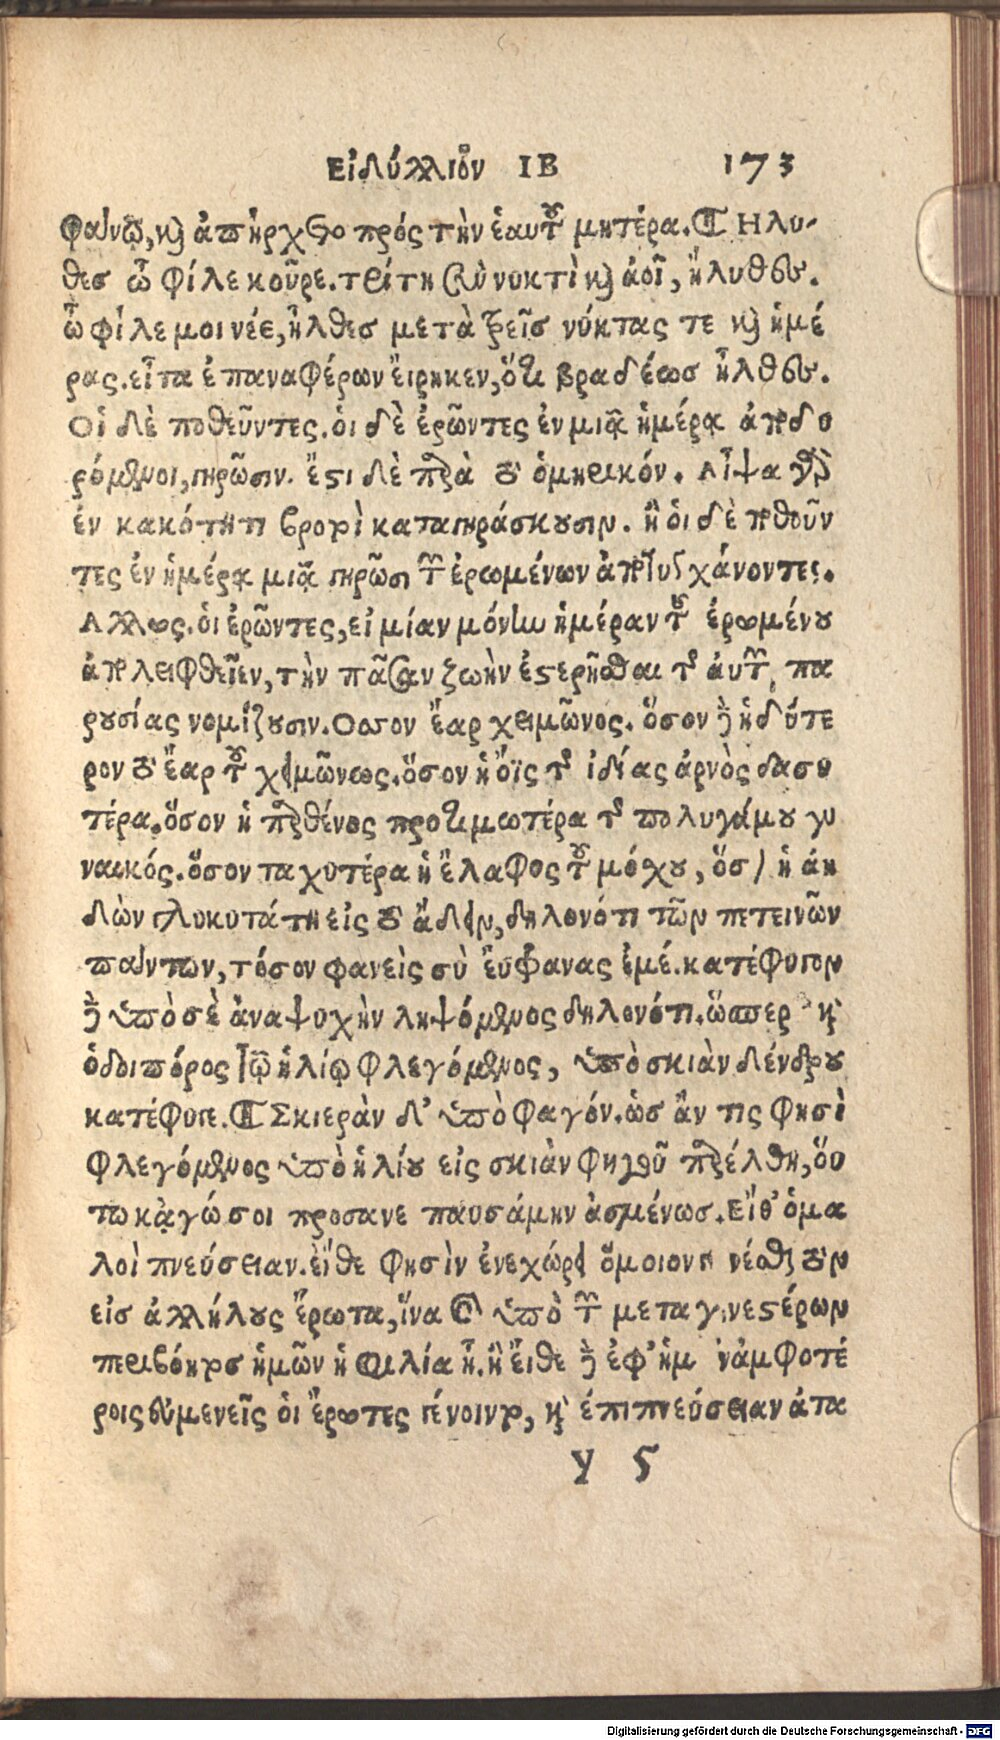 Εἰδύλλιον ΙΒ 173
φαίνω, καὶ ἀπήρχετο πρὸς τὴν ἑαυτοῦ μητέρα. Ηλυ-
θες ὦ φίλε κοῦρε. τρίτη σὺν νυκτὶ καὶ ἀοῖ, ἤλυθες.
ὦ φίλε μοι νέε, ἦλθες μετὰ τρεῖς νύκτας τε καὶ ἡμέ
ρας. εἶτα ἐπαναφέρων εἴρηκεν, ὅτι βραδέως ἦλθες.
Οἱ δὲ ποθεῦντες. οἱ δὲ ἐρῶντες ἐν μιᾷ ἡμέρᾳ ἀπὸ
γηρῶσιν. ἔστι δὲ παρὰ τὸ ὁμηρικόν. Αἶψα γὰρ
ἐν κακότητι βροτοὶ καταγηράσκουσιν. ἢ οἱ δὲ ποθοῦν
τες ἐν ἡμέρᾳ μιᾷ γηρῶσι τῶν ἐρωμένων ἀποτυγχάνοντες.
Αλλως. οἱ ἐρῶντες, εἰ μίαν μόνην ἡμέραν τοῦ ἐρωμένου
ἀπολειφθεῖεν, τὴν πᾶσαν ζωὴν ἐστερῆσθαι τῆς αὐτῶν πα
ρουσίας νομίζουσιν. Οσον ἔαρ χειμῶνος. ὅσον ἡδύτε
ρον τὸ ἔαρ τοῦ χειμῶνος. ὅσον ἡ ὄϊς τῆς ἰδίας ἀρνὸς δασυ
τέρα. ὅσον ἡ παρθένος προτιμωτέρα τῆς πολυγάμου γυ
ναικός. ὅσον ταχυτέρα ἡ ἔλαφος τοῦ μόχου, ὅσον ἡ ἀη
δὼν γλυκυτάτη εἰς τὸ ᾄδειν, δηλονότι τῶν πετεινῶν
πάντων, τόσον φανεὶς σὺ εὔφρανας ἐμέ. κατέφυγον
δὲ ὑπὸ σὲ ἀναψυχὴν ληψόμενος δηλονότι. ὥσπερ καὶ
ὁδοιπόρος τῷ ἡλίῳ φλεγόμενος, ὑπὸ σκιὰν δένδρου
κατέφυγε. Σκιερὰν δ' ὑπὸ φαγόν. ὡς ἄν τις φησὶ
φλεγόμενος ὑπὸ ἡλίου εἰς σκιὰν φηγοῦ παρέλθῃ, οὕ
τω κἀγώ σοι προσανεπαυσάμην ἀσμένως. Εἴθ' ὁμα
λοὶ πνεύσειαν. εἴθε φησὶν ἐνεχώρει ὅμοιον γενέσθαι τὸν
εἰς ἀλλήλους ἔρωτα, ἵνα ὑπὸ τῶν μεταγενεστέρων
περιβόητος ἡμῶν ἡ φιλία ᾖ. ἢ εἴθε ἐφ' ἡμῖν ἀμφοτέ
ροις εὐμενεῖς οἱ ἔρωτες γένοιντο, καὶ ἐπιπνεύσειαν ἀγα
y 5
Digitalisierung gefördert durch die Deutsche Forschungsgemeinschaft - DFG